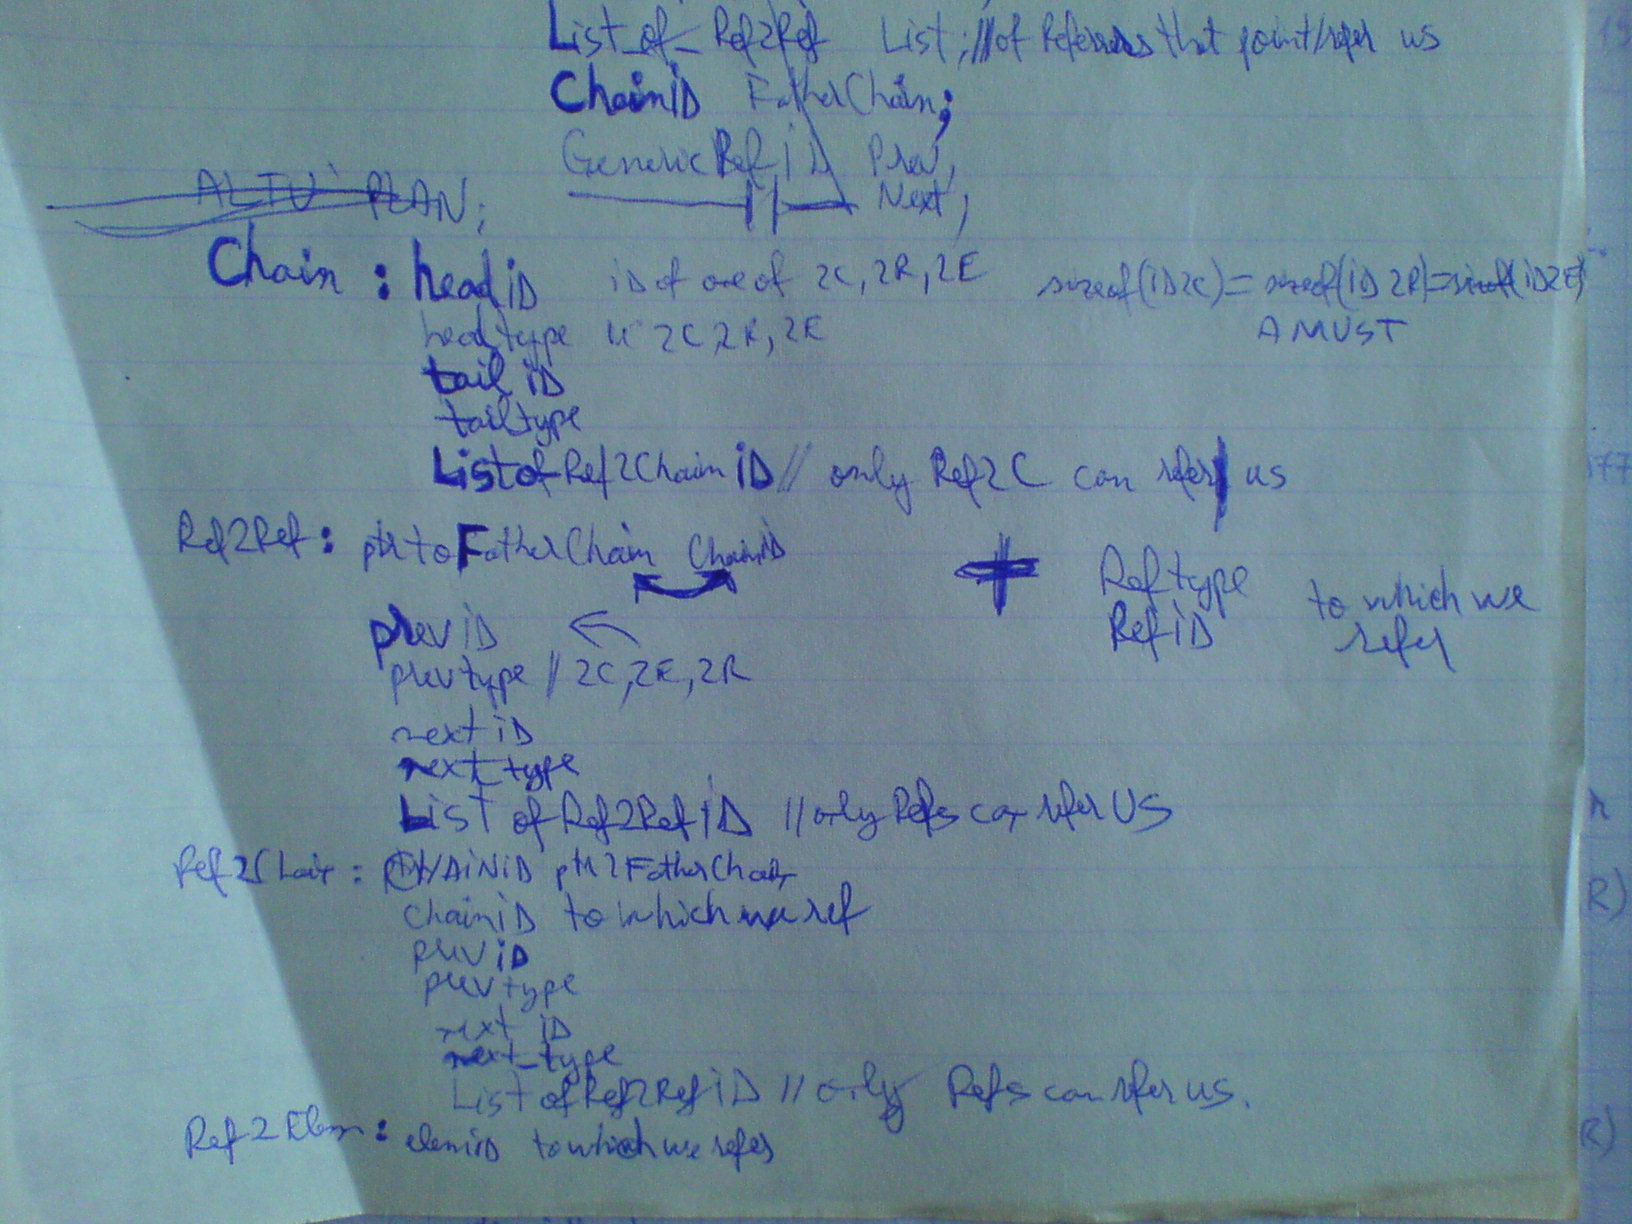 List_of_Ref2Ref List; // of Referrers that point/refer us
ChainID FatherChain;
GenericRefiD Prev,
—— || —— Next;
ALTU' PLAN;
Chain : head iD iD of one of 2C, 2R, 2E sizeof(iD2C)=sizeof(iD2R)=sizeof(iD2E)
head type 2C, 2R, 2E A MUST
tail iD
tail type
List of Ref2Chain iD // only Ref2C can refer us
Ref2Ref : ptr to FatherChain ChainiD
+ Ref type
Ref iD to which we refer
prev iD
prev type // 2C, 2E, 2R
next iD
next_type
List of Ref2Ref iD // only Refs can refer US
Ref2Chain : CHAiNiD ptr2FatherChain
chainiD to which we ref
prev iD
prev type
next iD
next_type
List of Ref2Ref iD // only Refs can refer us.
Ref2Elem : elemiD to which we refer
177
R)
R)